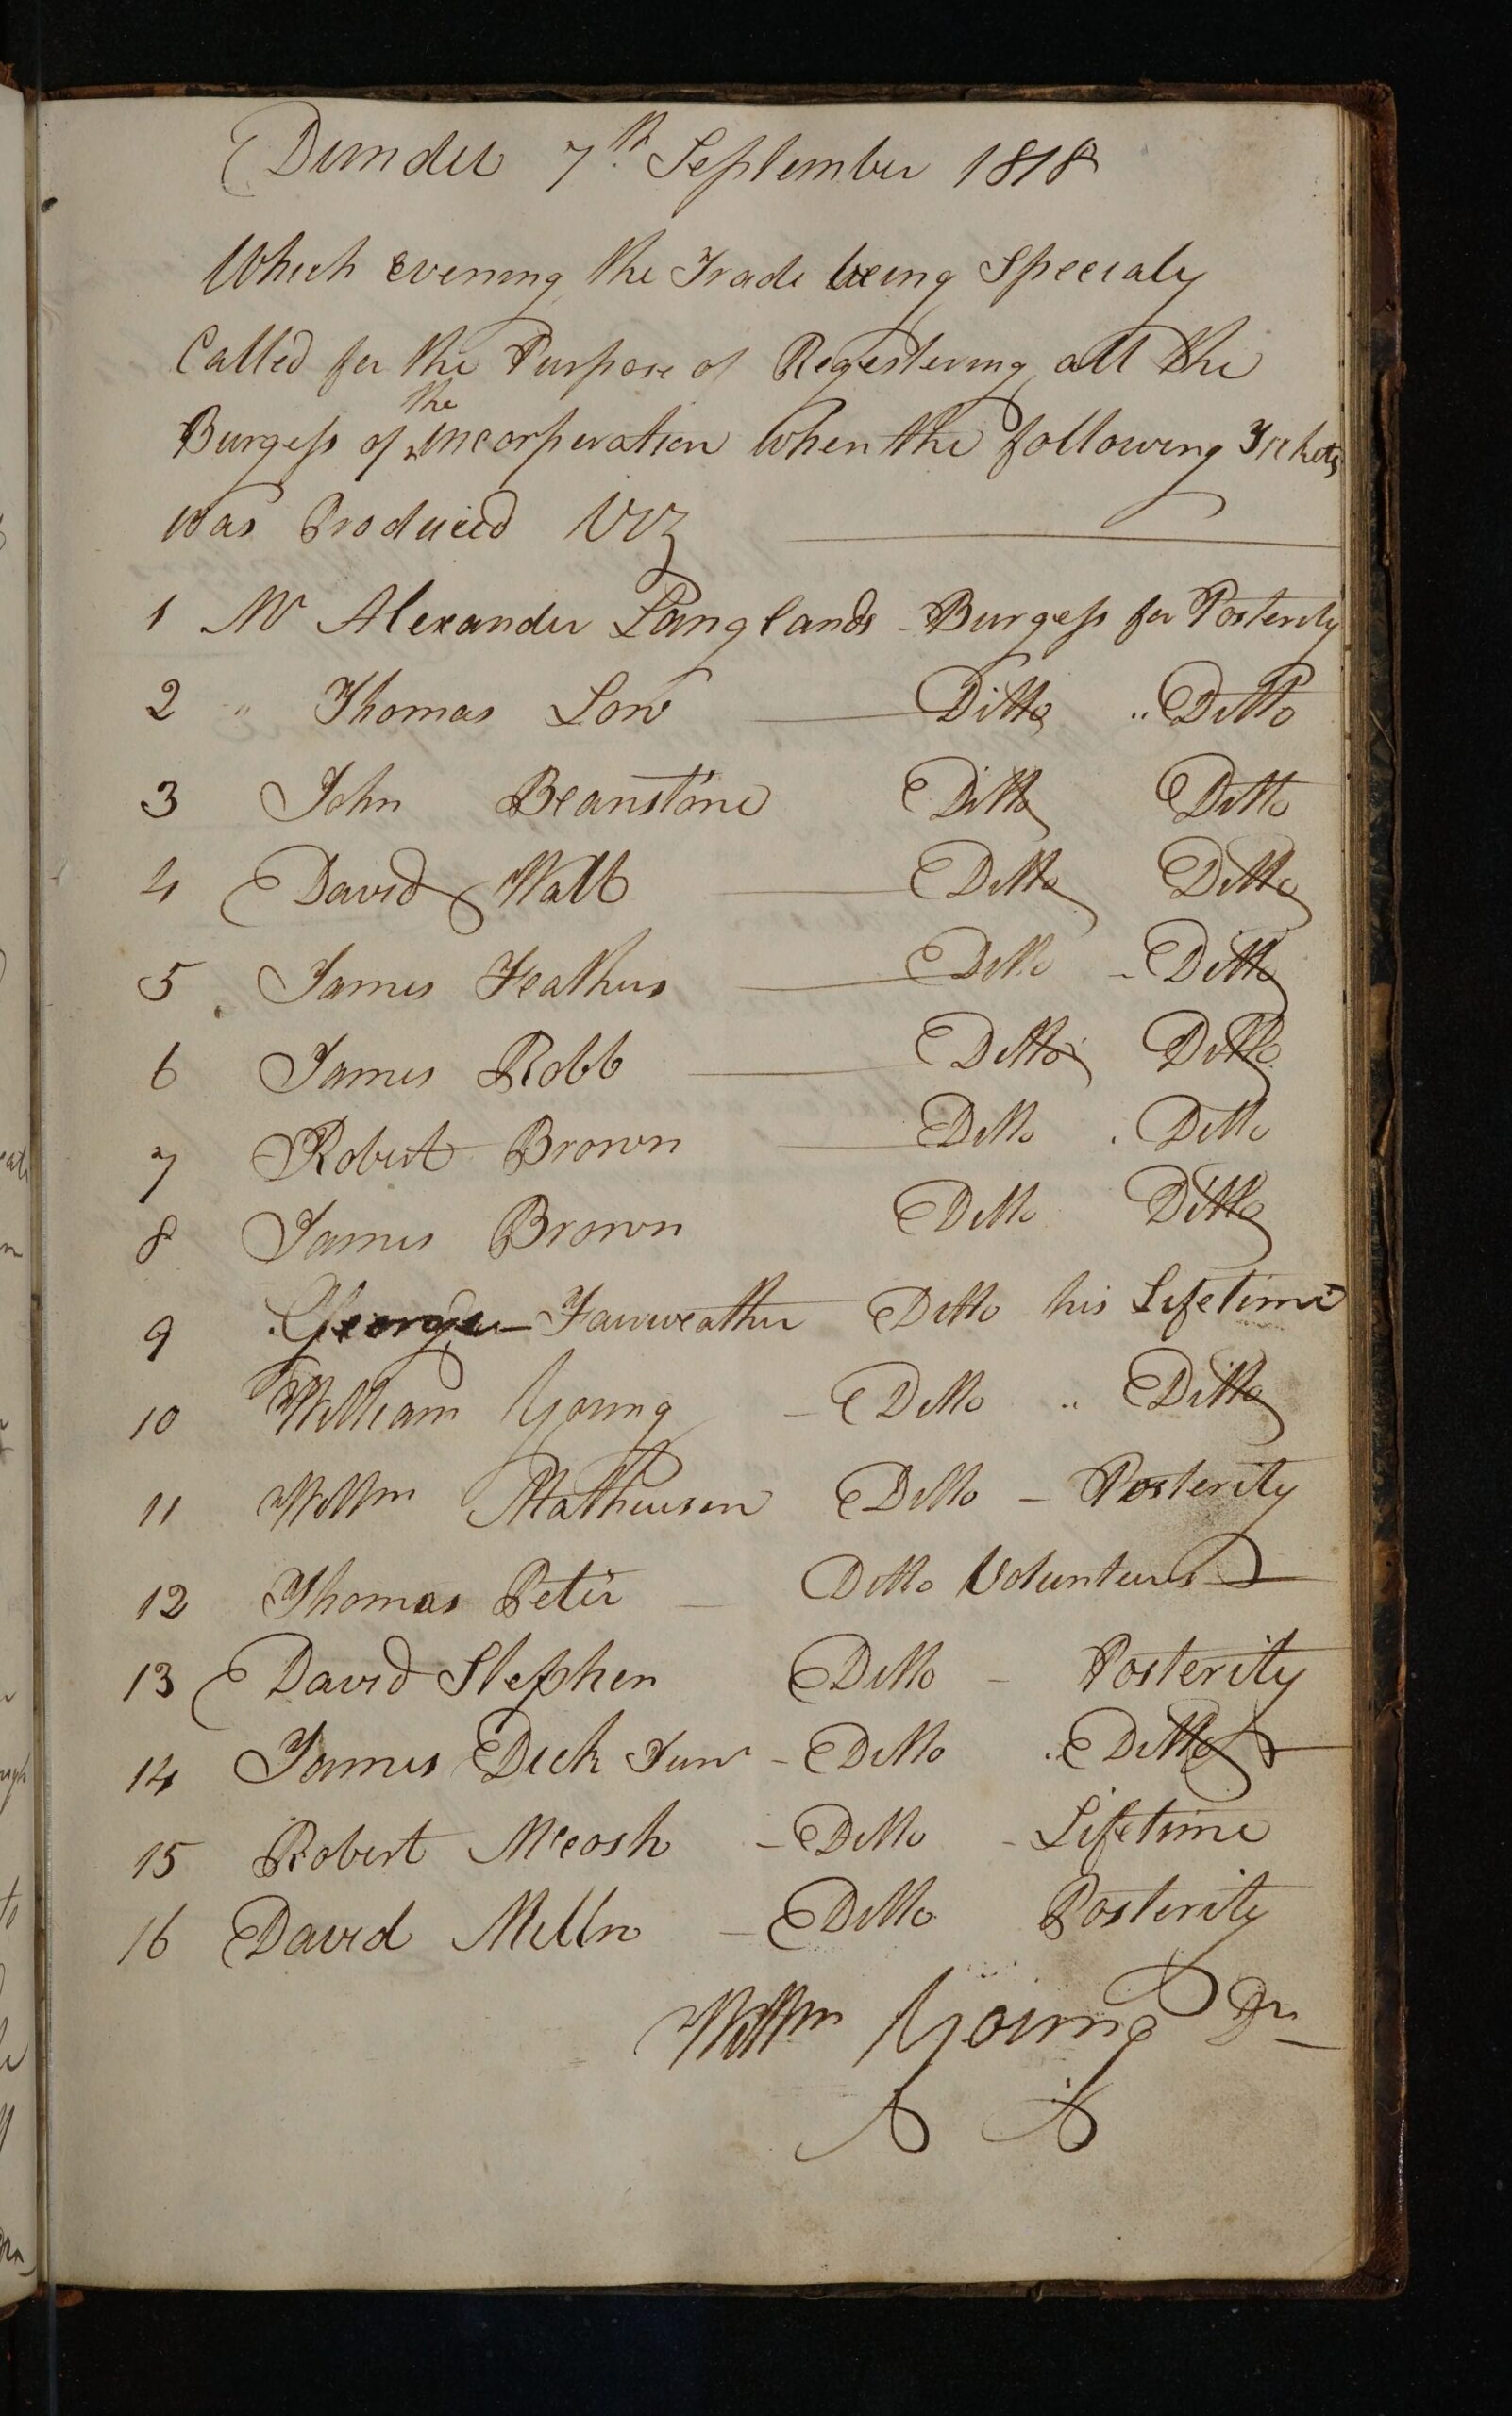 Dundee 7th September 1818
Which evening the Trade being Specialy
Called for the Purpose of Regestering all the
Burgess of the incorperation when the following Tickets
was Produced Viz
1 Mr Alexander Langlands - Burgess for Posterity
2 " Thomas Low Ditto " Ditto
3 John Beanstone Ditto Ditto
4 David Watt Ditto Ditto
5 James Feathers Ditto - Ditto
6 James Robb Ditto Ditto
7 Robert Brown Ditto Ditto
8 James Brown Ditto Ditto
9 George Fairweather Ditto his Lifetime
10 William Young - Ditto " Ditto
11 Willm Mathewson Ditto - Posterity
12 Thomas Peter - Ditto Volunteers
13 David Stephen Ditto - Posterity
14 James Dick Junr - Ditto " Ditto
15 Robert Mccosh - Ditto - Lifetime
16 David Milln - Ditto Posterity
Willm Young Dn